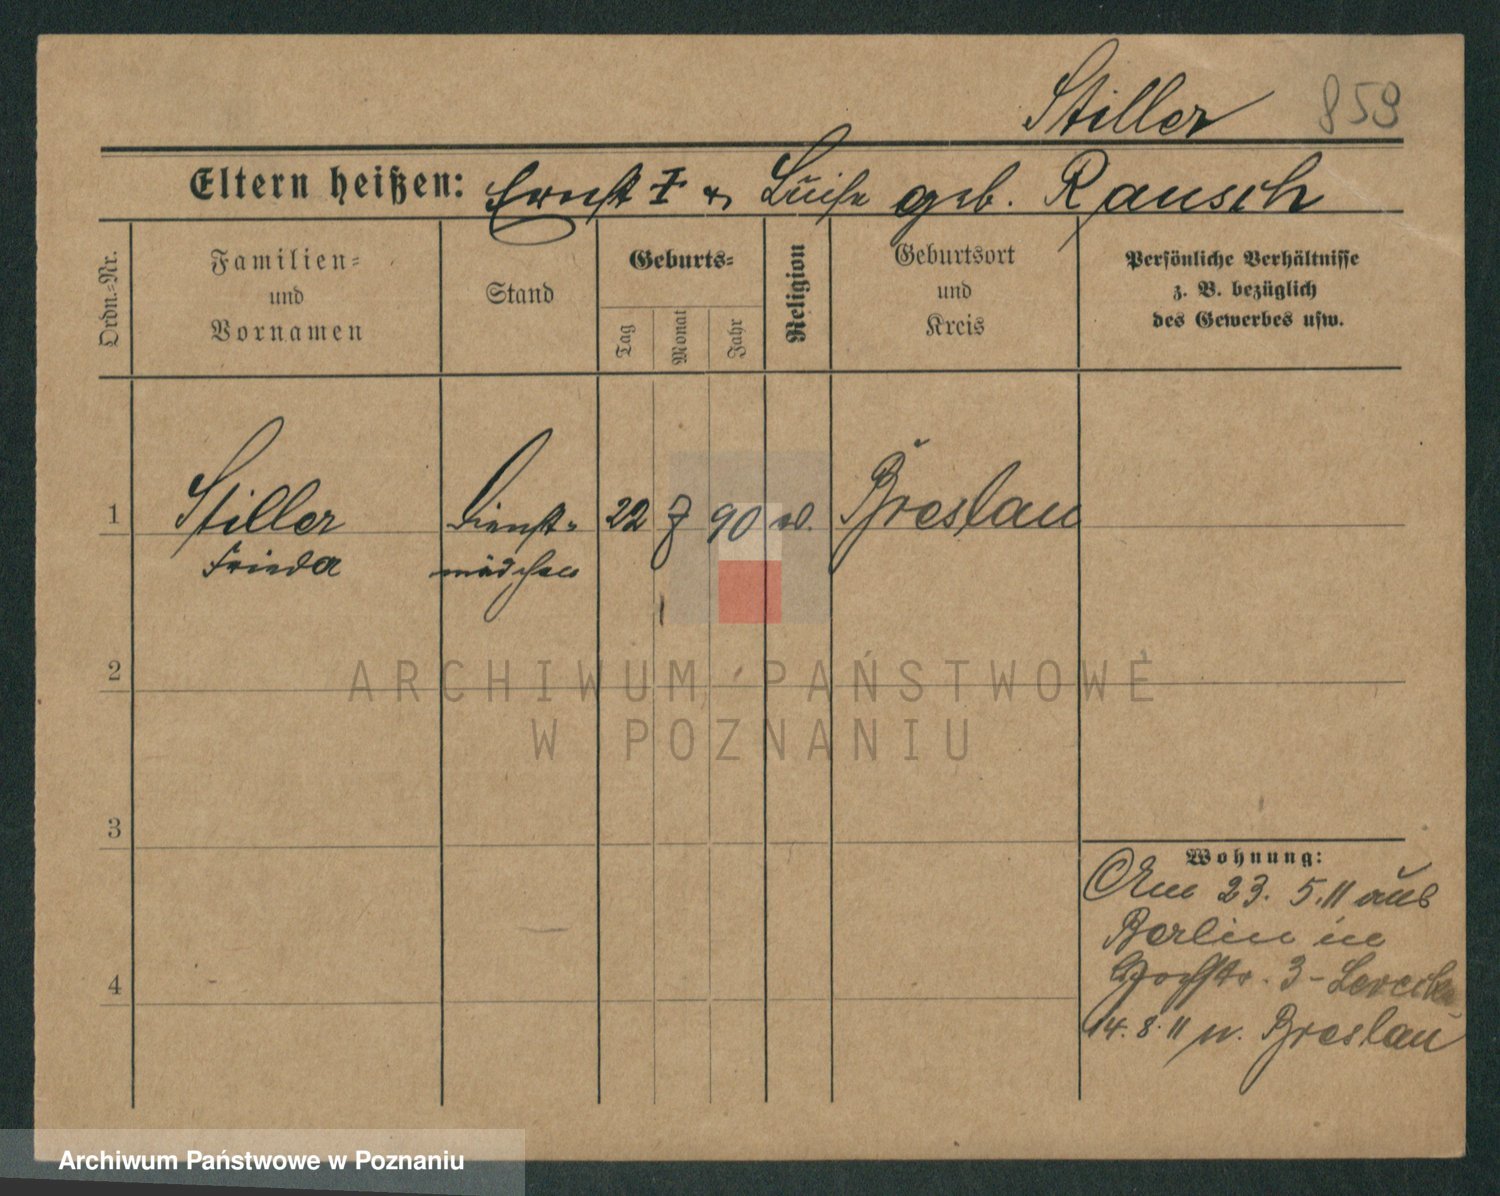 Stiller 859
Eltern heißen: Ernst I u. Luise geb. Rausch
Ordn.-Nr.
Familien-
und
Vornamen
Stand
Geburts-
Tag
Monat
Jahr
Religion
Geburtsort
und
Kreis
Persönliche Verhältnisse
z. B. bezüglich
des Gewerbes usw.
1 Stiller Dienst- 22 7 90 Breslau
Frieda mädchen
2
3
4
Wohnung:
Am 23. 5. 11 aus
Berlin in
3 -
14. 8. 11 n. Breslau
ARCHIWUM PAŃSTWOWE
W POZNANIU
Archiwum Państwowe w Poznaniu